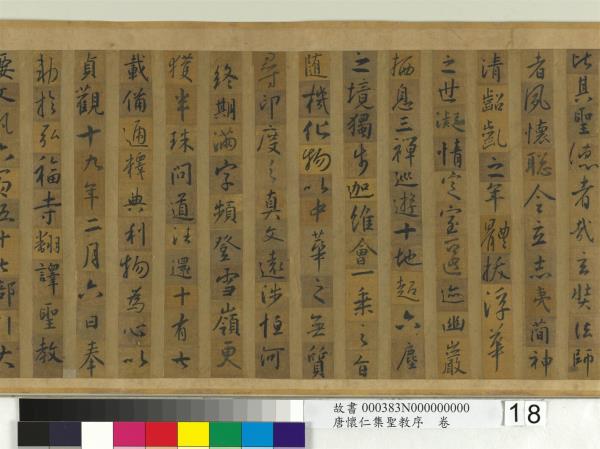 比其聖德者哉玄奘法師
者夙懷聰令立志夷簡神
清齠齔之年體拔浮華
之世凝情定室匿迹幽巖
栖息三禪巡遊十地超六塵
之境獨步迦維會一乘之旨
隨機化物以中華之無質
尋印度之真文遠涉恒河
終期滿字頻登雪嶺更
獲半珠問道法還十有七
載備通釋典利物為心以
貞觀十九年二月六日奉
勅於弘福寺翻譯聖教
要文凡六百五十七部引大
故書 000383N000000000
唐懷仁集聖教序 卷
18